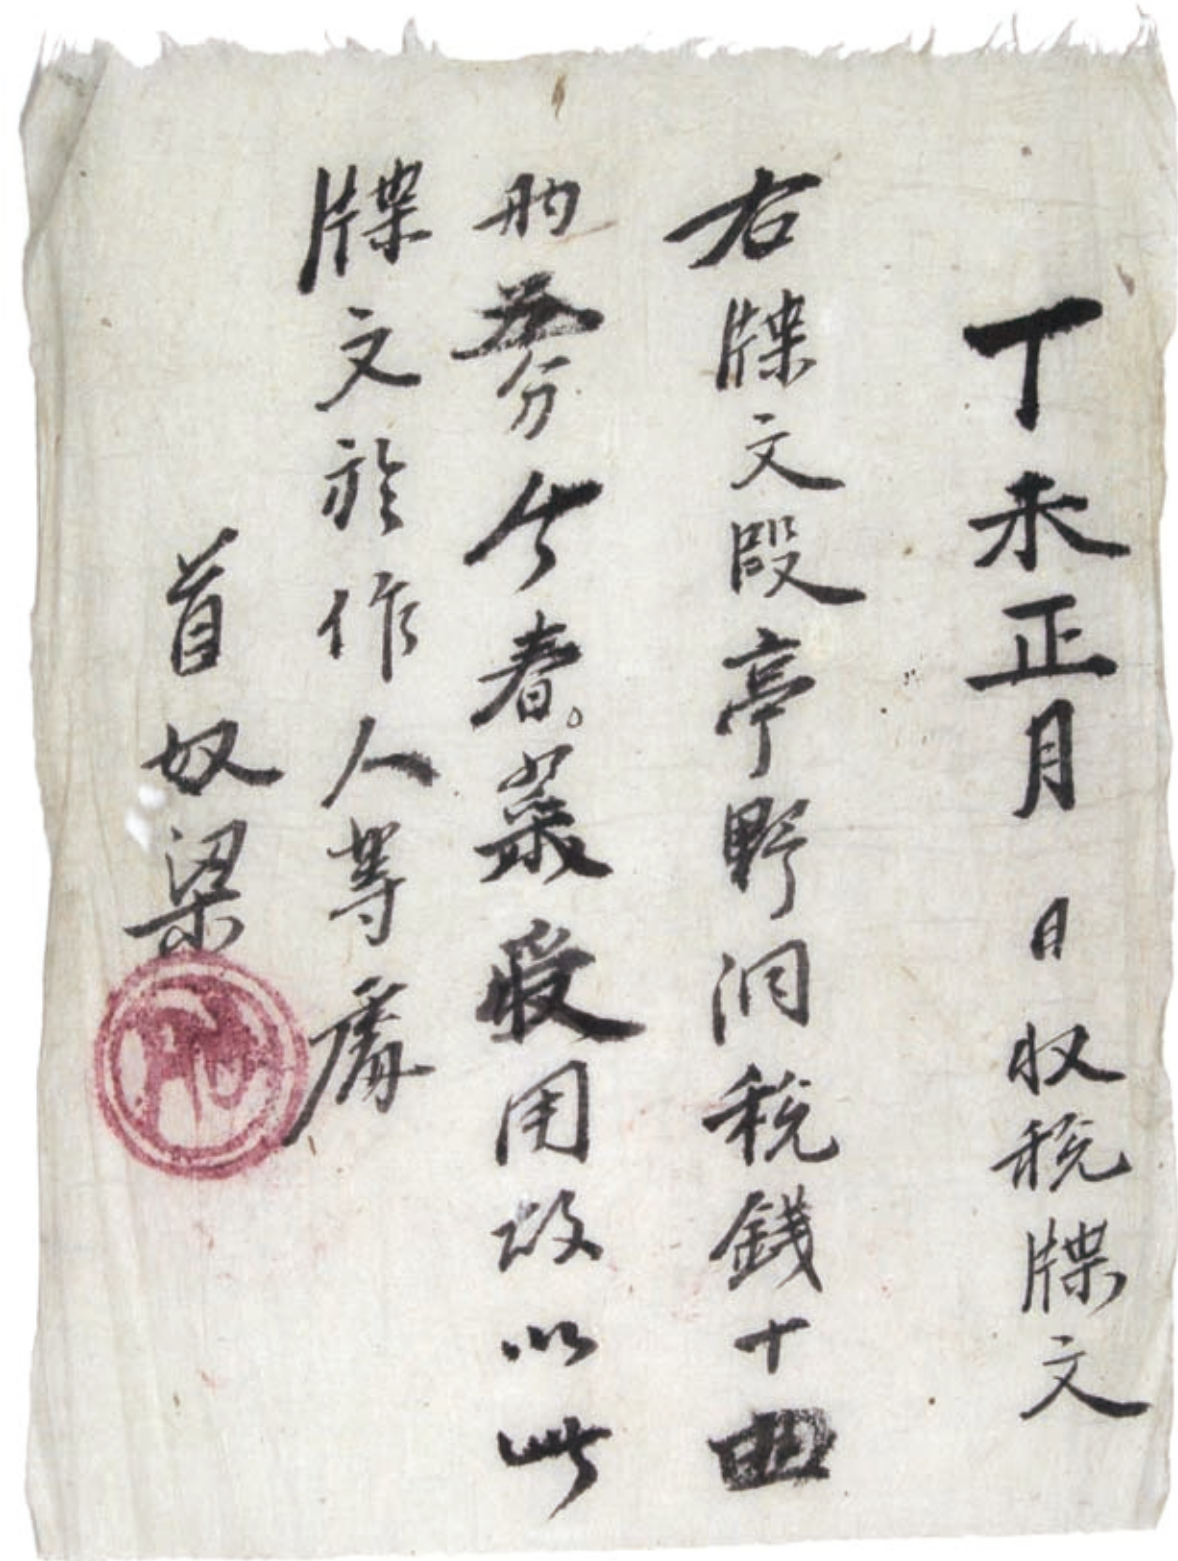 丁未正月 日收稅牒文
右牒文段亭野洞稅錢十四
兩五分今春 𠬧用故以此
牒文於作人等處
首奴梁